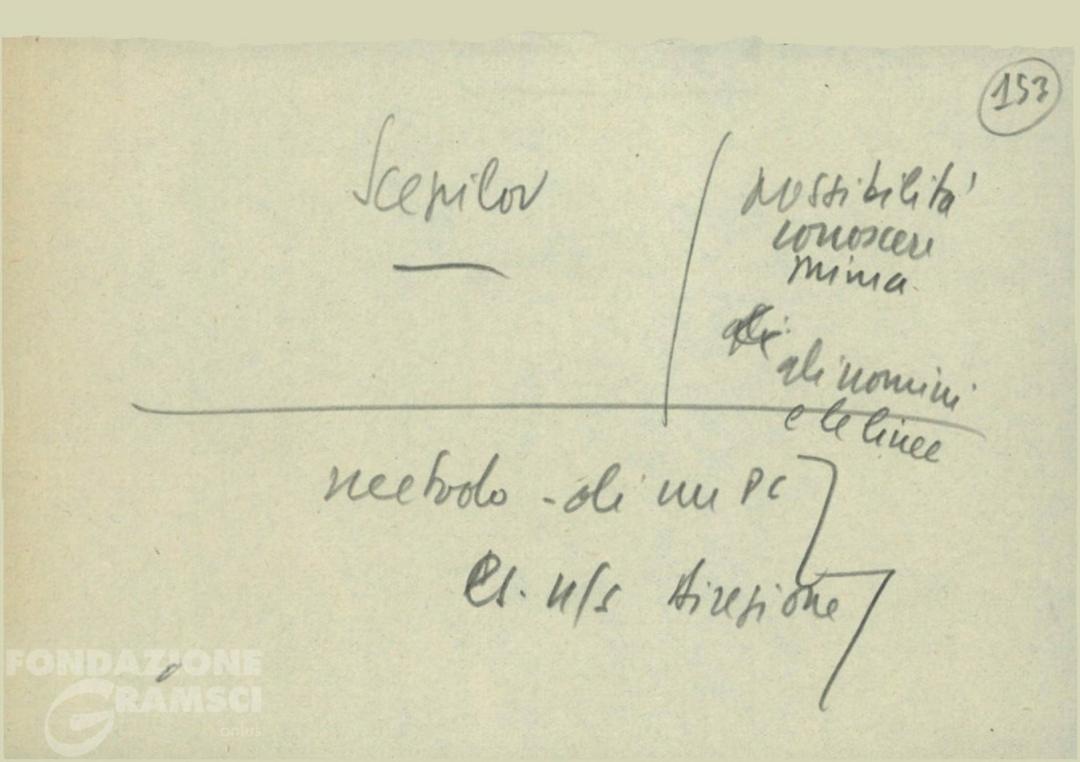 153
Scepilov
possibilità
conoscere
prima
gli uomini
e le linee
metodo - di un PC
Es. n/s Direzione
FONDAZIONE
GRAMSCI
onlus